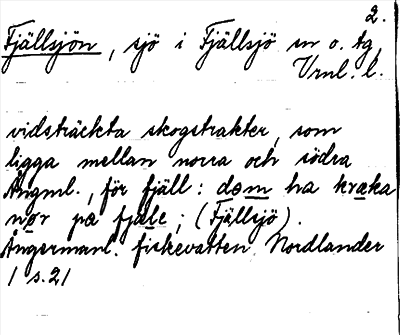 2.
Fjällsjön, sjö i Fjällsjö sn o. tg,
Vrnl. l.
vidsträckta skogstrakter, som
ligga mellan norra och södra
Ångml., för fjäll: dom ha kraka
nor på fjale; (Fjällsjö).
Ångermanl. fiskevatten Nordlander
1 s.21